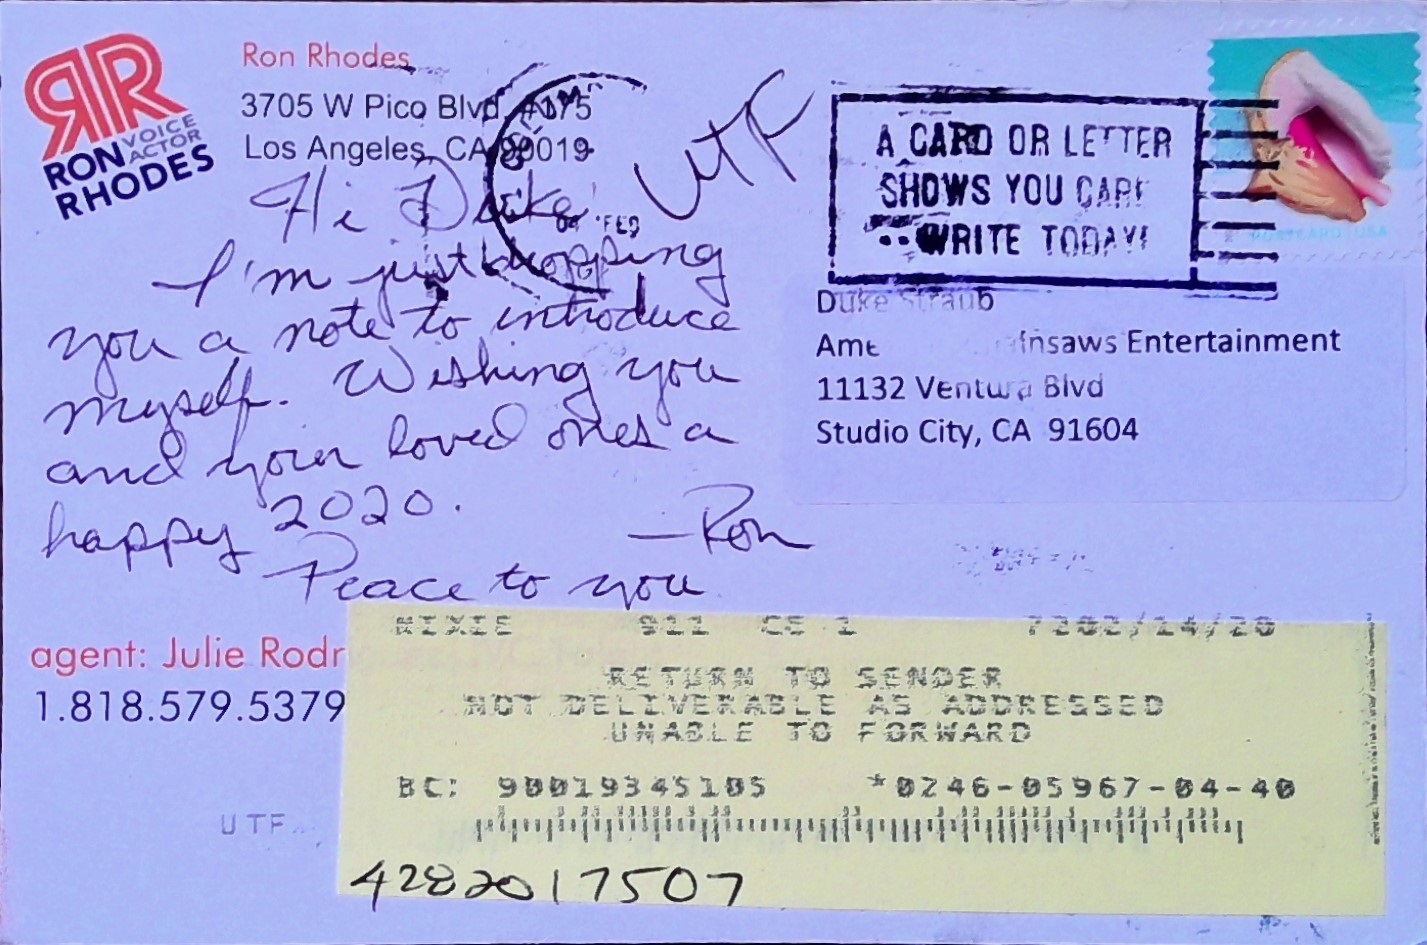 RR
RON VOICE
ACTOR
RHODES
Ron Rhodes
3705 W Pico Blvd, #175
Los Angeles, CA 90019
UTF
Hi Duke,
I'm just dropping
you a note to introduce
myself. Wishing you
and your loved ones a
happy 2020.
—Ron
Peace to you
agent: Julie Rodr
1.818.579.5379
UTF
04 FEB
A CARD OR LETTER
SHOWS YOU CARE
WRITE TODAY!
POSTCARD USA
Duke Straub
Ame insaws Entertainment
11132 Ventura Blvd
Studio City, CA 91604
NIXIE 911 CE 1 7202/14/20
RETURN TO SENDER
NOT DELIVERABLE AS ADDRESSED
UNABLE TO FORWARD
BC: 90019345105 *0246-05967-04-40
4282017507